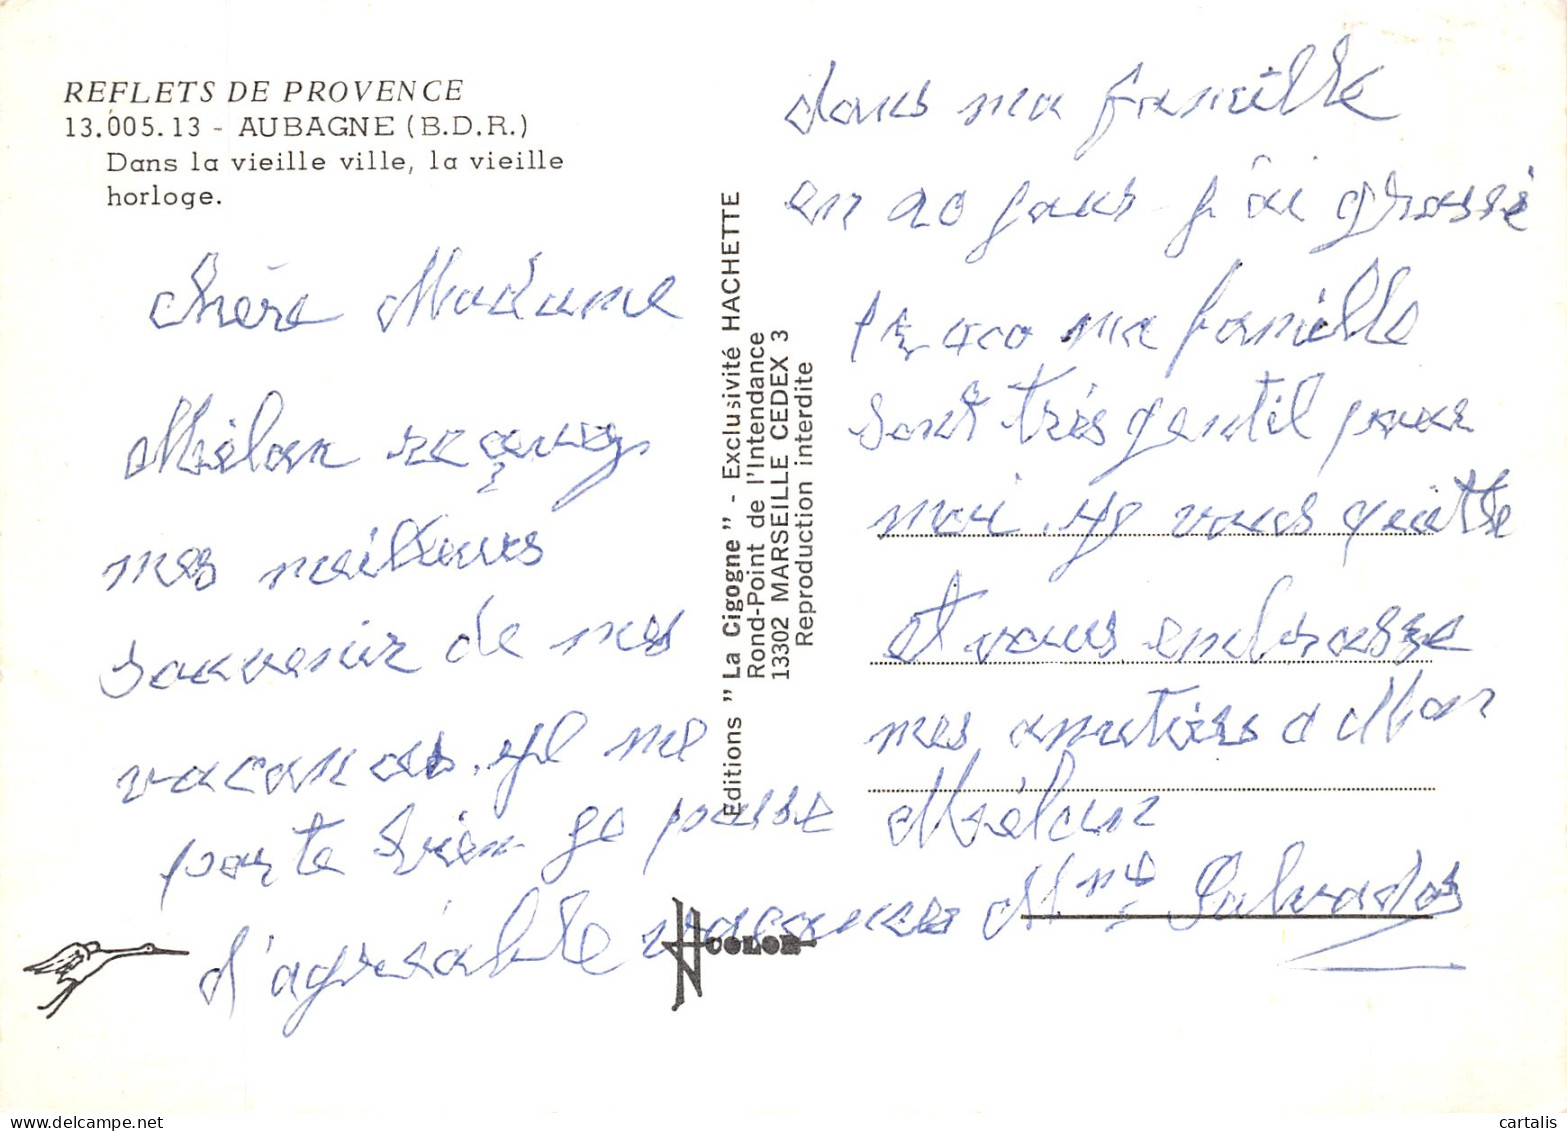 REFLETS DE PROVENCE
13.005.13 - AUBAGNE (B.D.R.)
Dans la vieille ville, la vieille
horloge.
chère Madame
Mélan reçevez
mes meilleurs
souvenir de mes
vacances. je me
porte bien je passe
d'agréable vacances
Editions " La Cigogne " - Exclusivité HACHETTE
Rond-Point de l'Intendance
13302 MARSEILLE CEDEX 3
Reproduction interdite
COLOR
dans ma famille
en 20 jours j'ai grossi
1k400 ma famille
sont très gentil pour
moi. je vous quitte
et vous embrasse
mes amitiés a Mon
Mélan
Mme Salvador